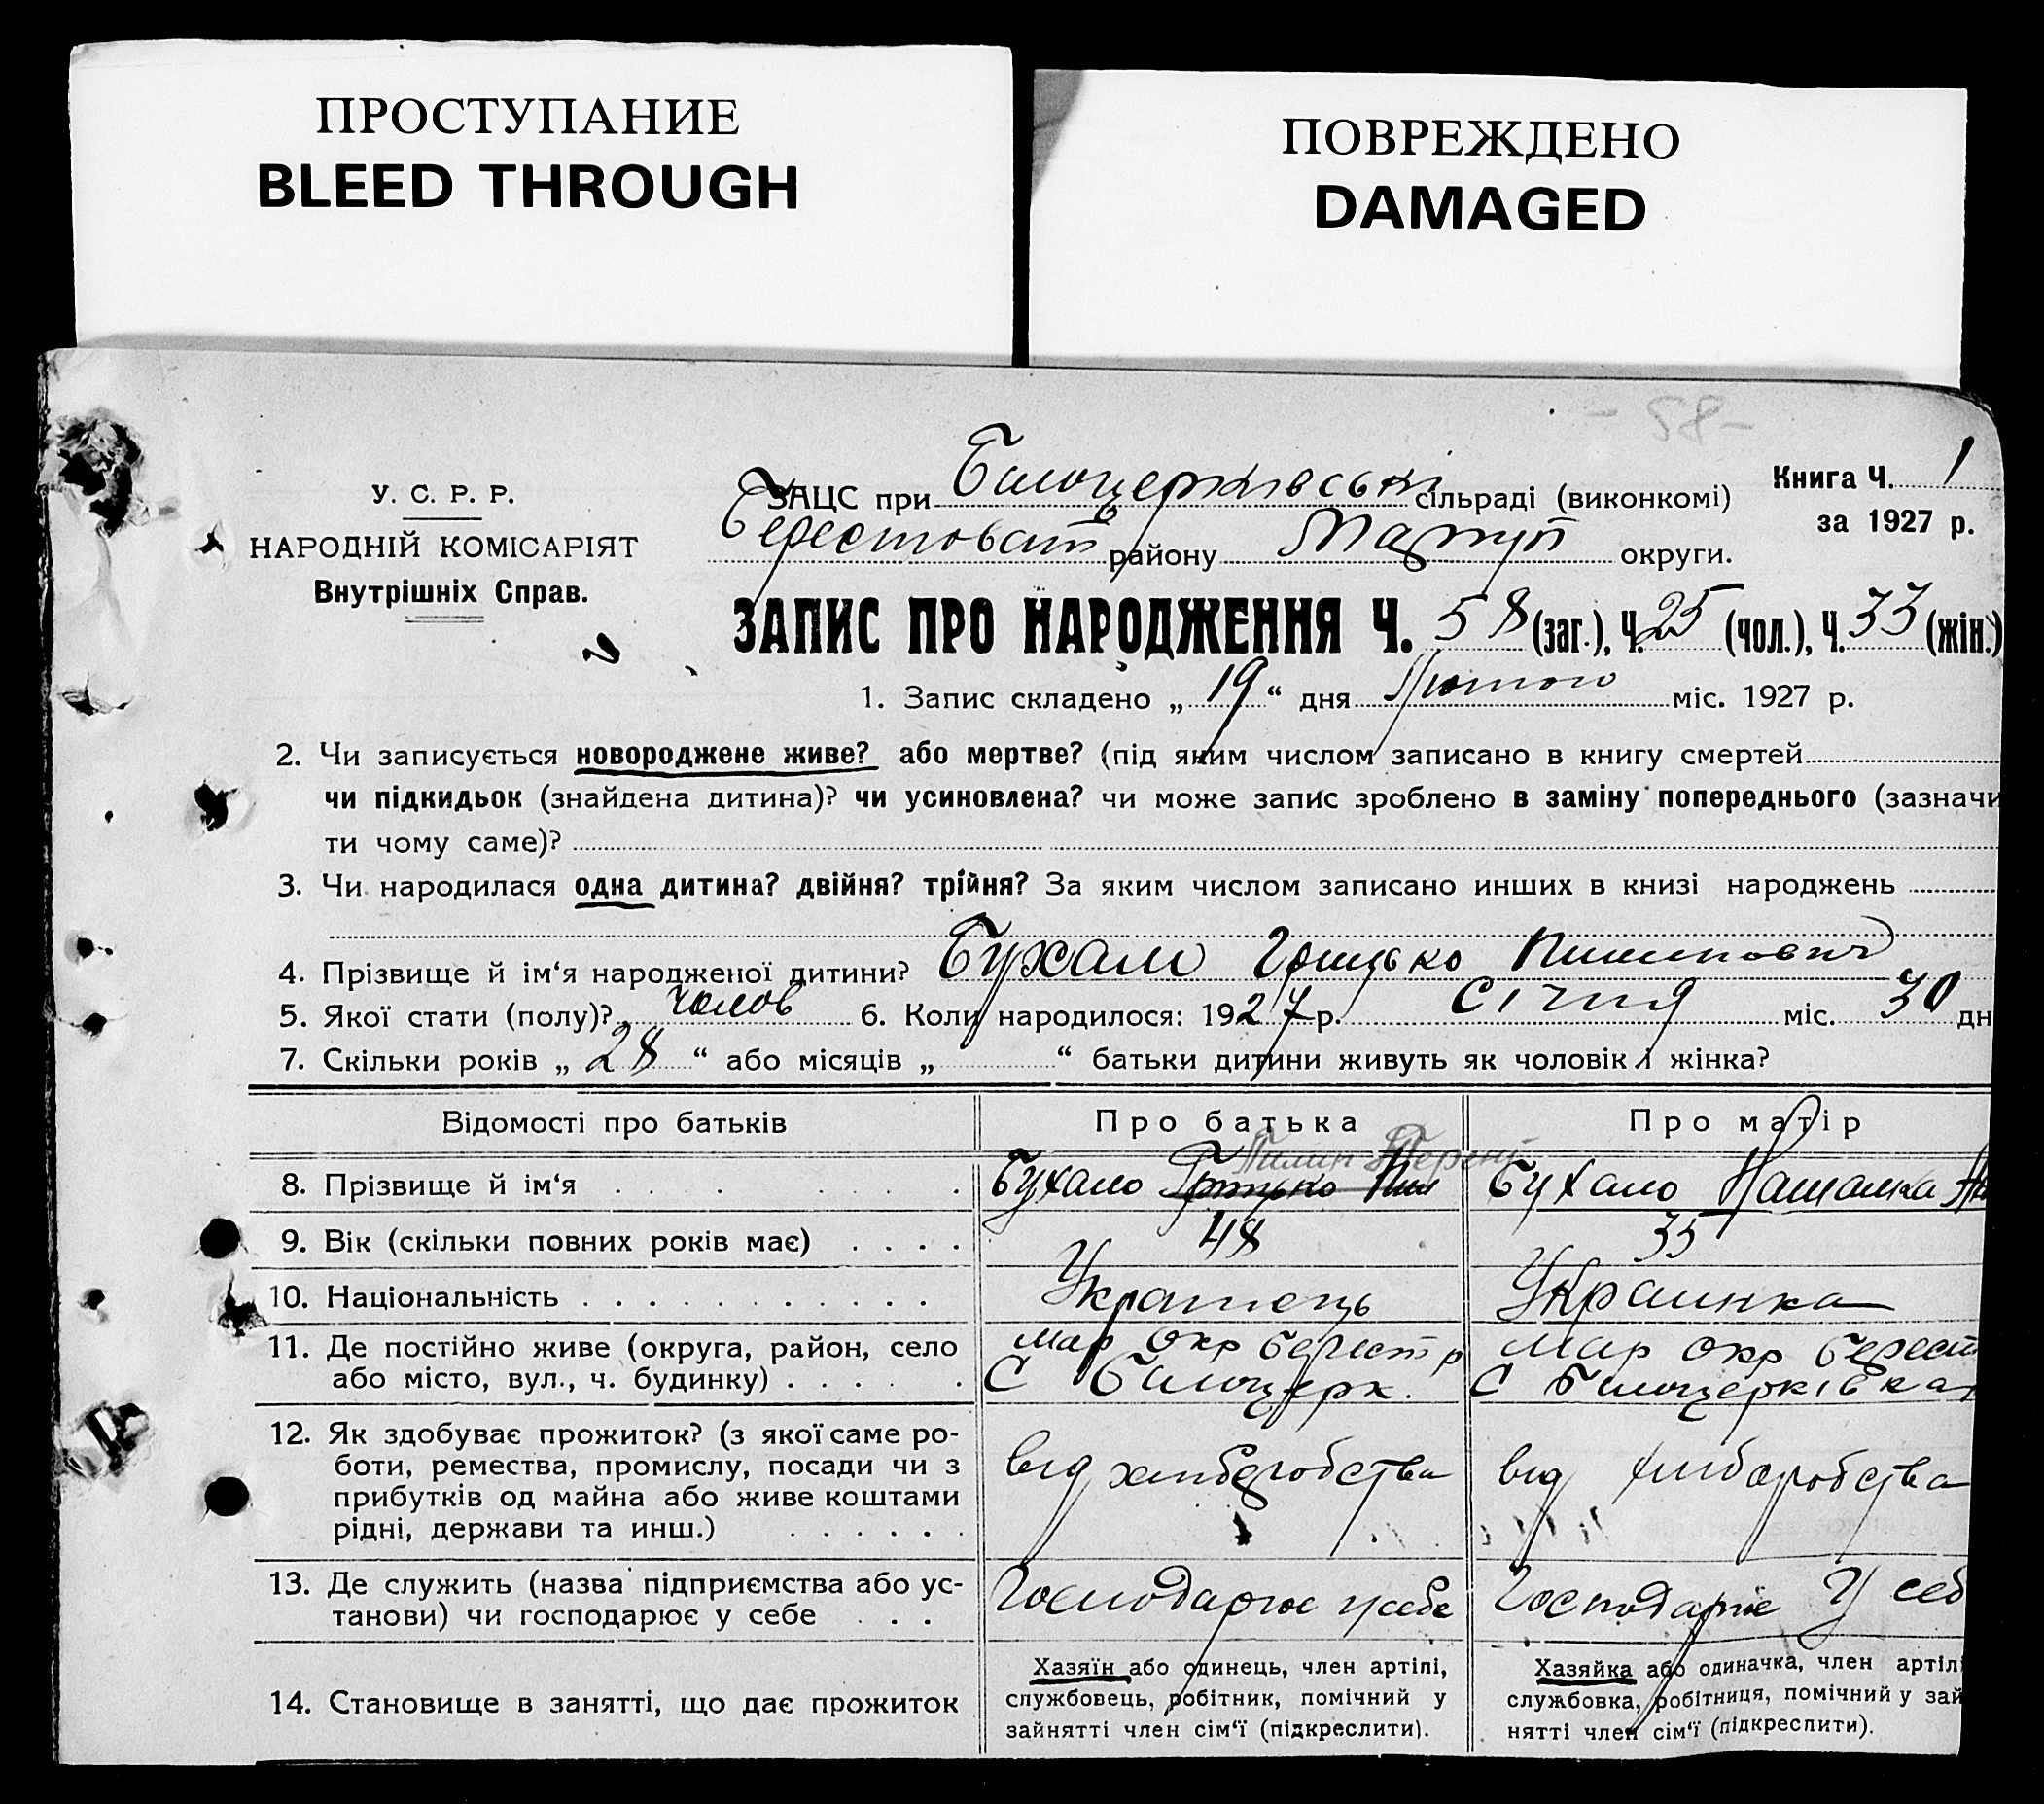 ПРОСТУПАНИЕ
BLEED THROUGH
ПОВРЕЖДЕНО
DAMAGED
- 58 -
У. С. Р. Р.
НАРОДНІЙ КОМІСАРІЯТ
Внутрішніх Справ.
ЗАЦС при Білоцерківські сільраді (виконкомі)
Берестоват району Маріуп округи.
Книга Ч. 1
за 1927 р.
ЗАПИС ПРО НАРОДЖЕННЯ Ч. 58 (заг.), Ч. 25 (чол.), Ч. 33 (жін.)
1. Запис складено „ 19 “ дня Лютого міс. 1927 р.
2. Чи записується новороджене живе? або мертве? (під яким числом записано в книгу смертей
чи підкидьок (знайдена дитина)? чи усиновлена? чи може запис зроблено в заміну попереднього (зазначи
ти чому саме)?
3. Чи народилася одна дитина? двійня? трійня? За яким числом записано инших в книзі народжень
4. Прізвище й ім‘я народженої дитини? Бухало Грицько Пилипович
5. Якої стати (полу)? чолов 6. Коли народилося: 1927 р. Січня міс. 30 дн
7. Скільки років „ 28 “ або місяців „ “ батьки дитини живуть як чоловік і жінка?
Відомості про батьків Про батька Про матір
Пилип Терент
8. Прізвище й ім‘я Бухало Грицько Пил Бухало Наталка
9. Вік (скільки повних років має) 48 35
10. Національність Украінець Украинка
11. Де постійно живе (округа, район, село Мар окр Берест р Мар окр Берест
або місто, вул., ч. будинку) С Білоцерк. С Білоцерківка
12. Як здобуває прожиток? (з якої саме ро-
боти, ремества, промислу, посади чи з від хліборобства від хліборобства
прибутків од майна або живе коштами
рідні, держави та инш.)
13. Де служить (назва підприємства або ус- Господарює у себе Господарює у себ
танови) чи господарює у себе
14. Становище в занятті, що дає прожиток
Хазяїн або одинець, член артілі,
службовець, робітник, помічний у
зайнятті член сім‘ї (підкреслити).
Хазяйка або одиначка, член артіл
службовка, робітниця, помічний у зай
нятті член сім‘ї (підкреслити).